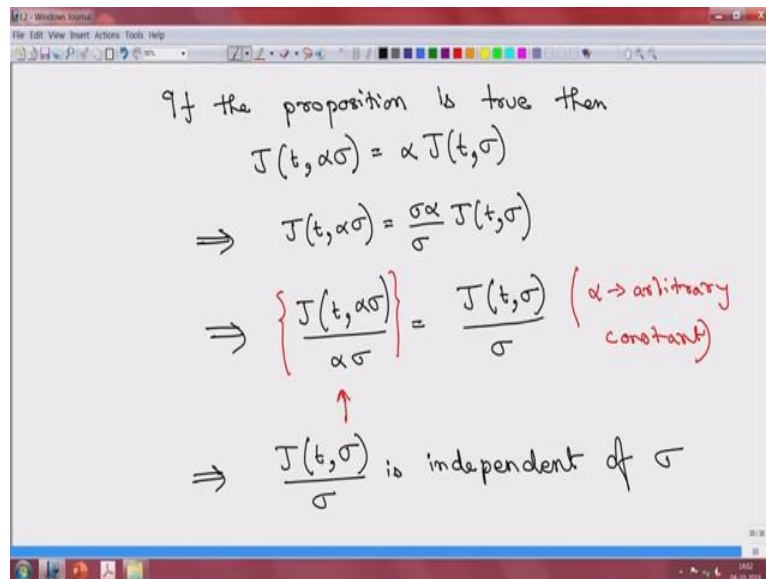 12 - Windows Journal
File Edit View Insert Actions Tools Help
If the proposition is true then
J(t, ασ) = α J(t, σ)
⇒ J(t, ασ) = σα/σ J(t, σ)
⇒ {J(t, ασ)/ασ} = J(t, σ)/σ (α → arbitrary
constant)
↑
⇒ J(t, σ)/σ is independent of σ